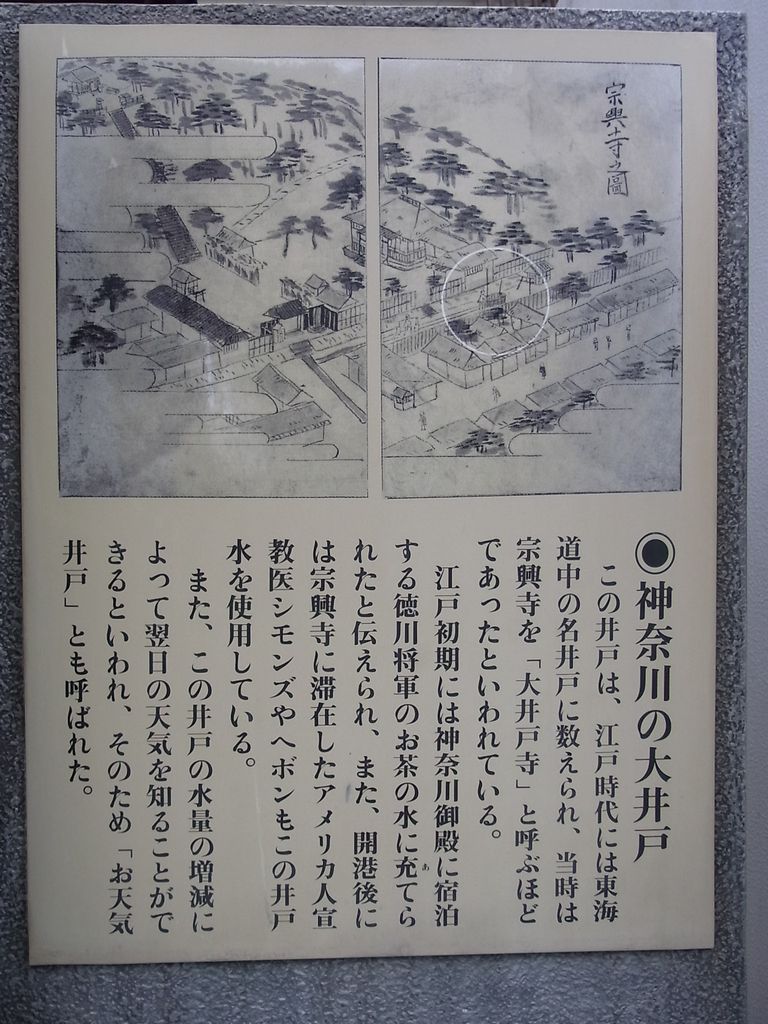 宗興寺之圖
◉神奈川の大井戸
この井戸は、江戸時代には東海
道中の名井戸に数えられ、当時は
宗興寺を「大井戸寺」と呼ぶほど
であったといわれている。
江戸初期には神奈川御殿に宿泊
する徳川将軍のお茶の水に充てら
あ
れたと伝えられ、また、開港後に
は宗興寺に滞在したアメリカ人宣
教医シモンズやヘボンもこの井戸
水を使用している。
また、この井戸の水量の増減に
よって翌日の天気を知ることがで
きるといわれ、そのため「お天気
井戸」とも呼ばれた。